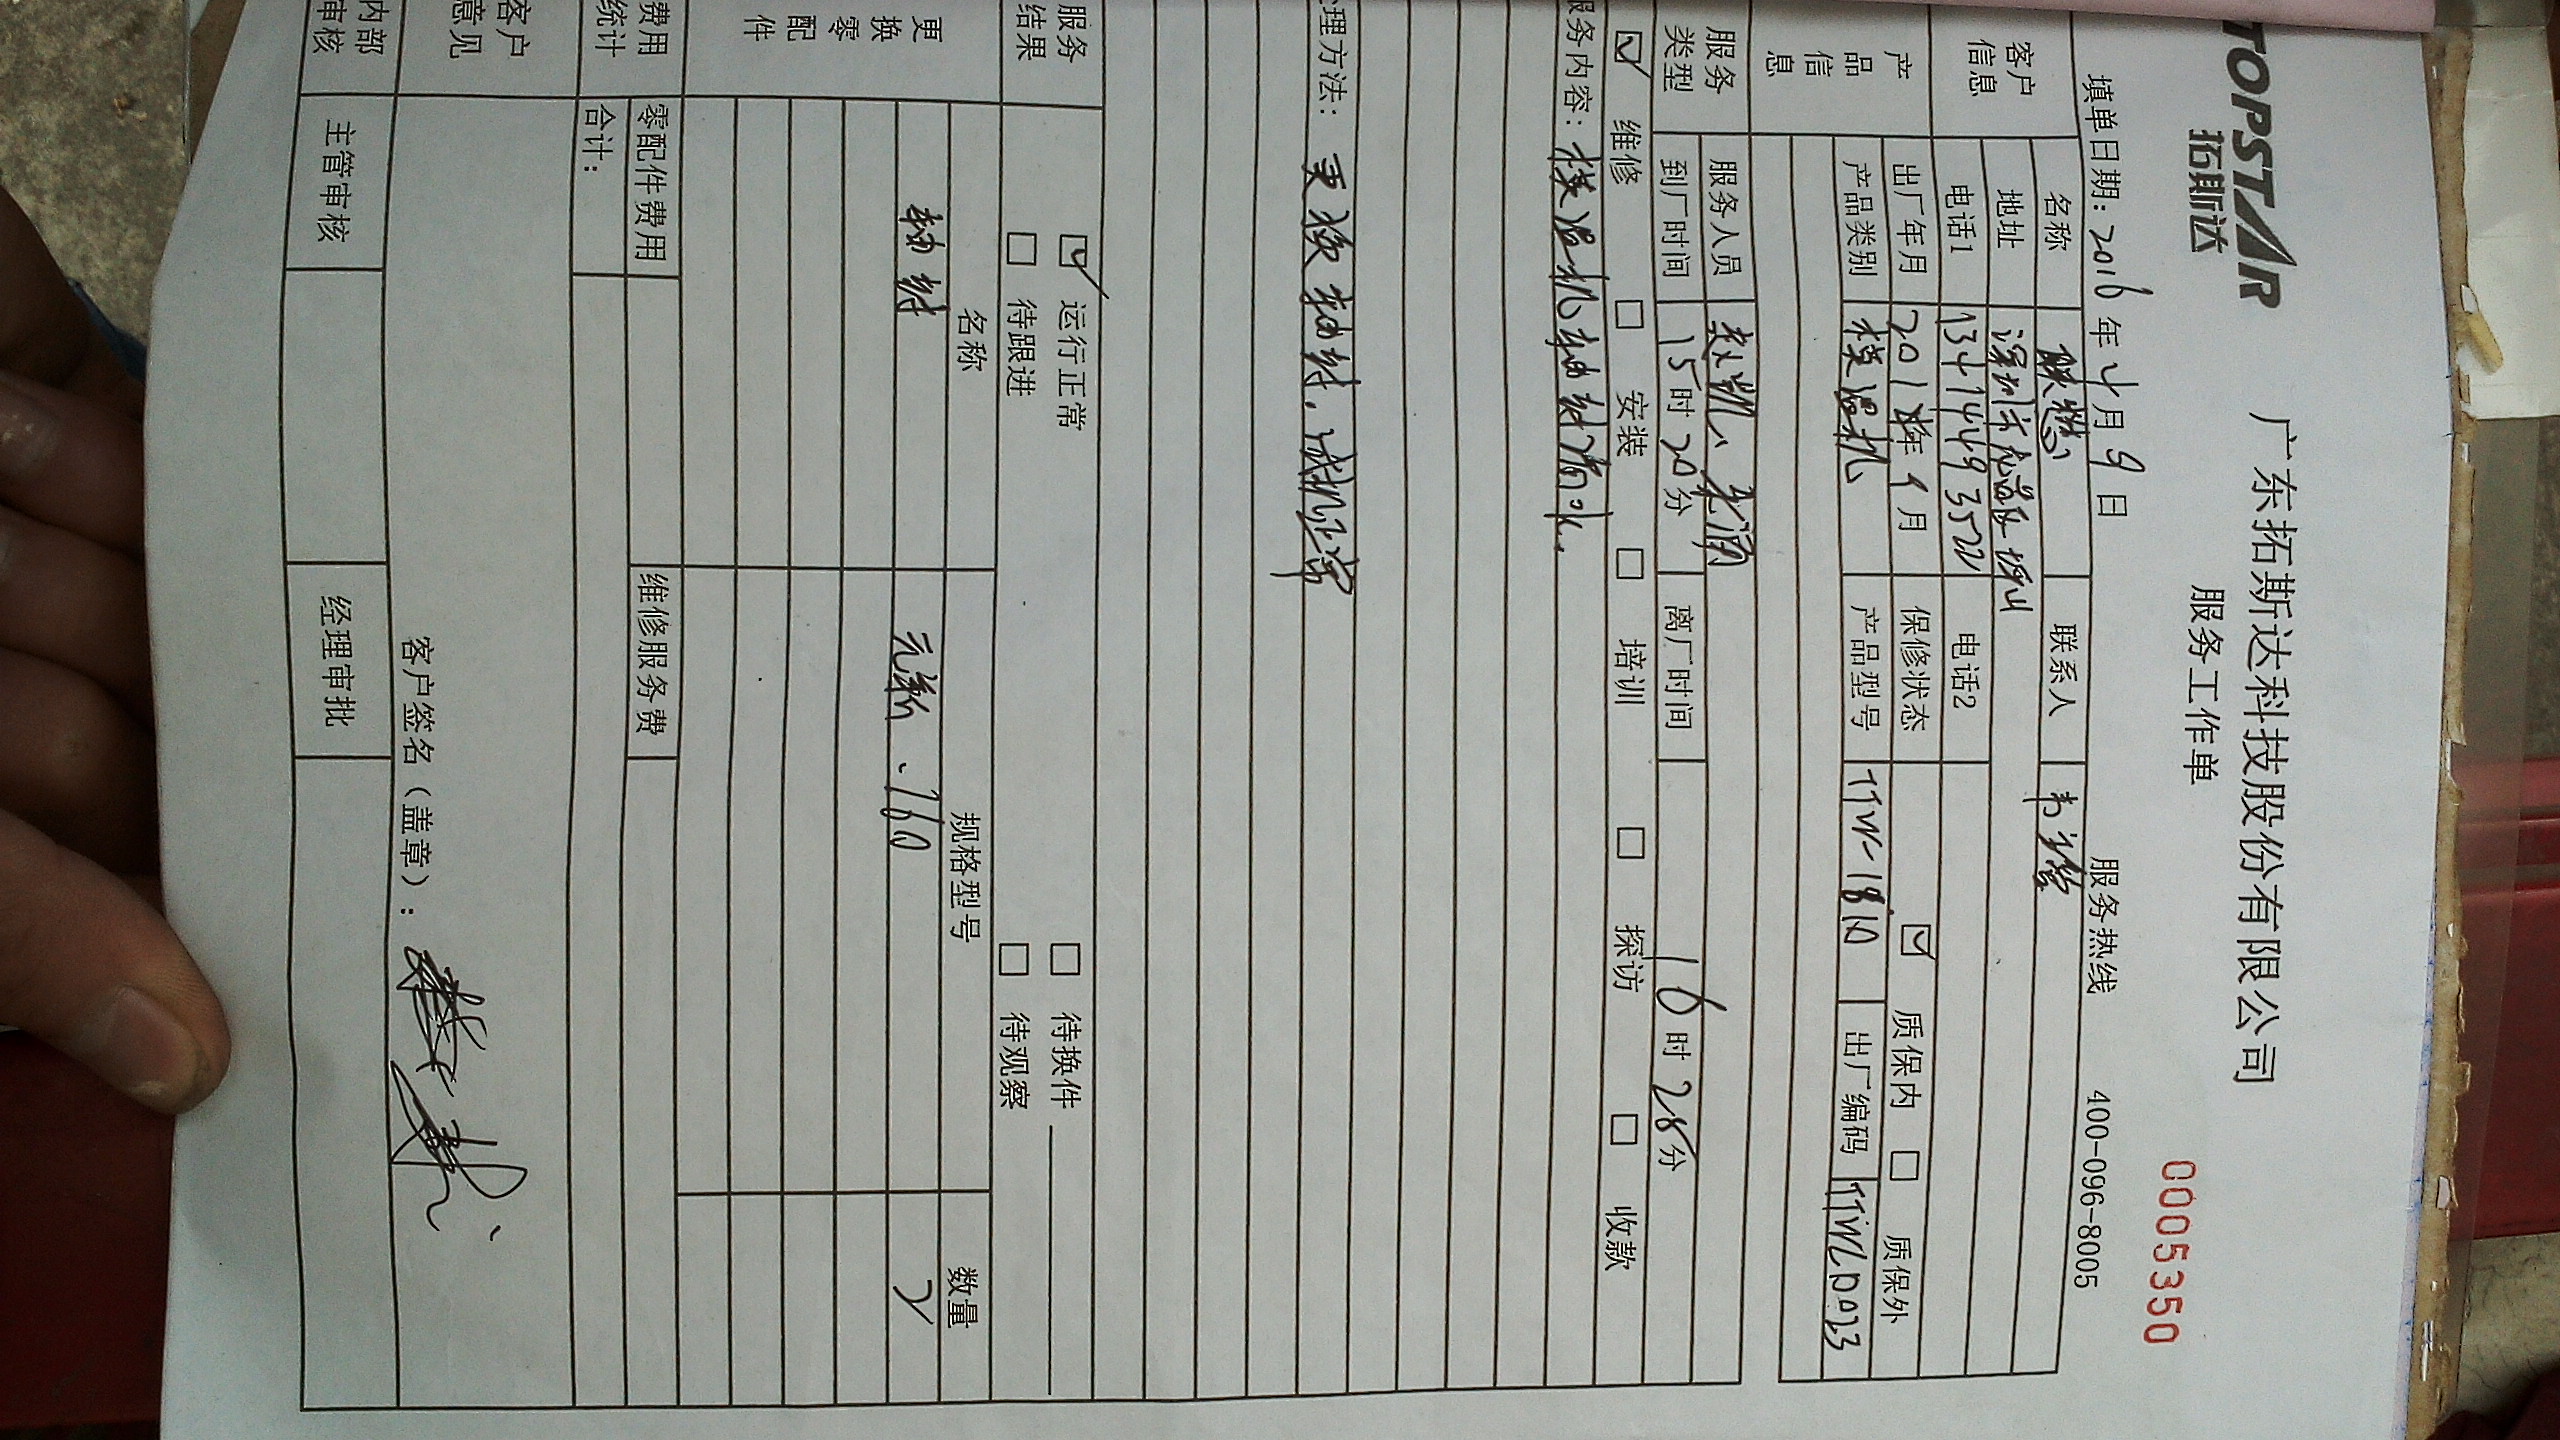 TOPSTAR
拓斯达
广东拓斯达科技股份有限公司
服务工作单
0005350
填单日期：2016年4月9日 服务热线 400-096-8005
客户信息 名称 联懋 联系人
地址 深圳市
电话1 13474493522 电话2
产品信息 出厂年月 保修状态 ☑ 质保内 □ 质保外
产品类别 模温机 产品型号 出厂编码
服务类型 服务人员
到厂时间 15时20分 离厂时间 16时28分
☑ 维修 □ 安装 □ 培训 □ 探访 □ 收款
服务内容：模温机轴封漏水.
理方法：更换轴封，试机正常
服务结果 ☑ 运行正常 □ 待换件
□ 待跟进 □ 待观察
更换零配件 名称 规格型号 数量
轴封 元新 2
费用统计 零配件费用 维修服务费
合计：
客户意见
客户签名（盖章）：
内部审核 主管审核 经理审批